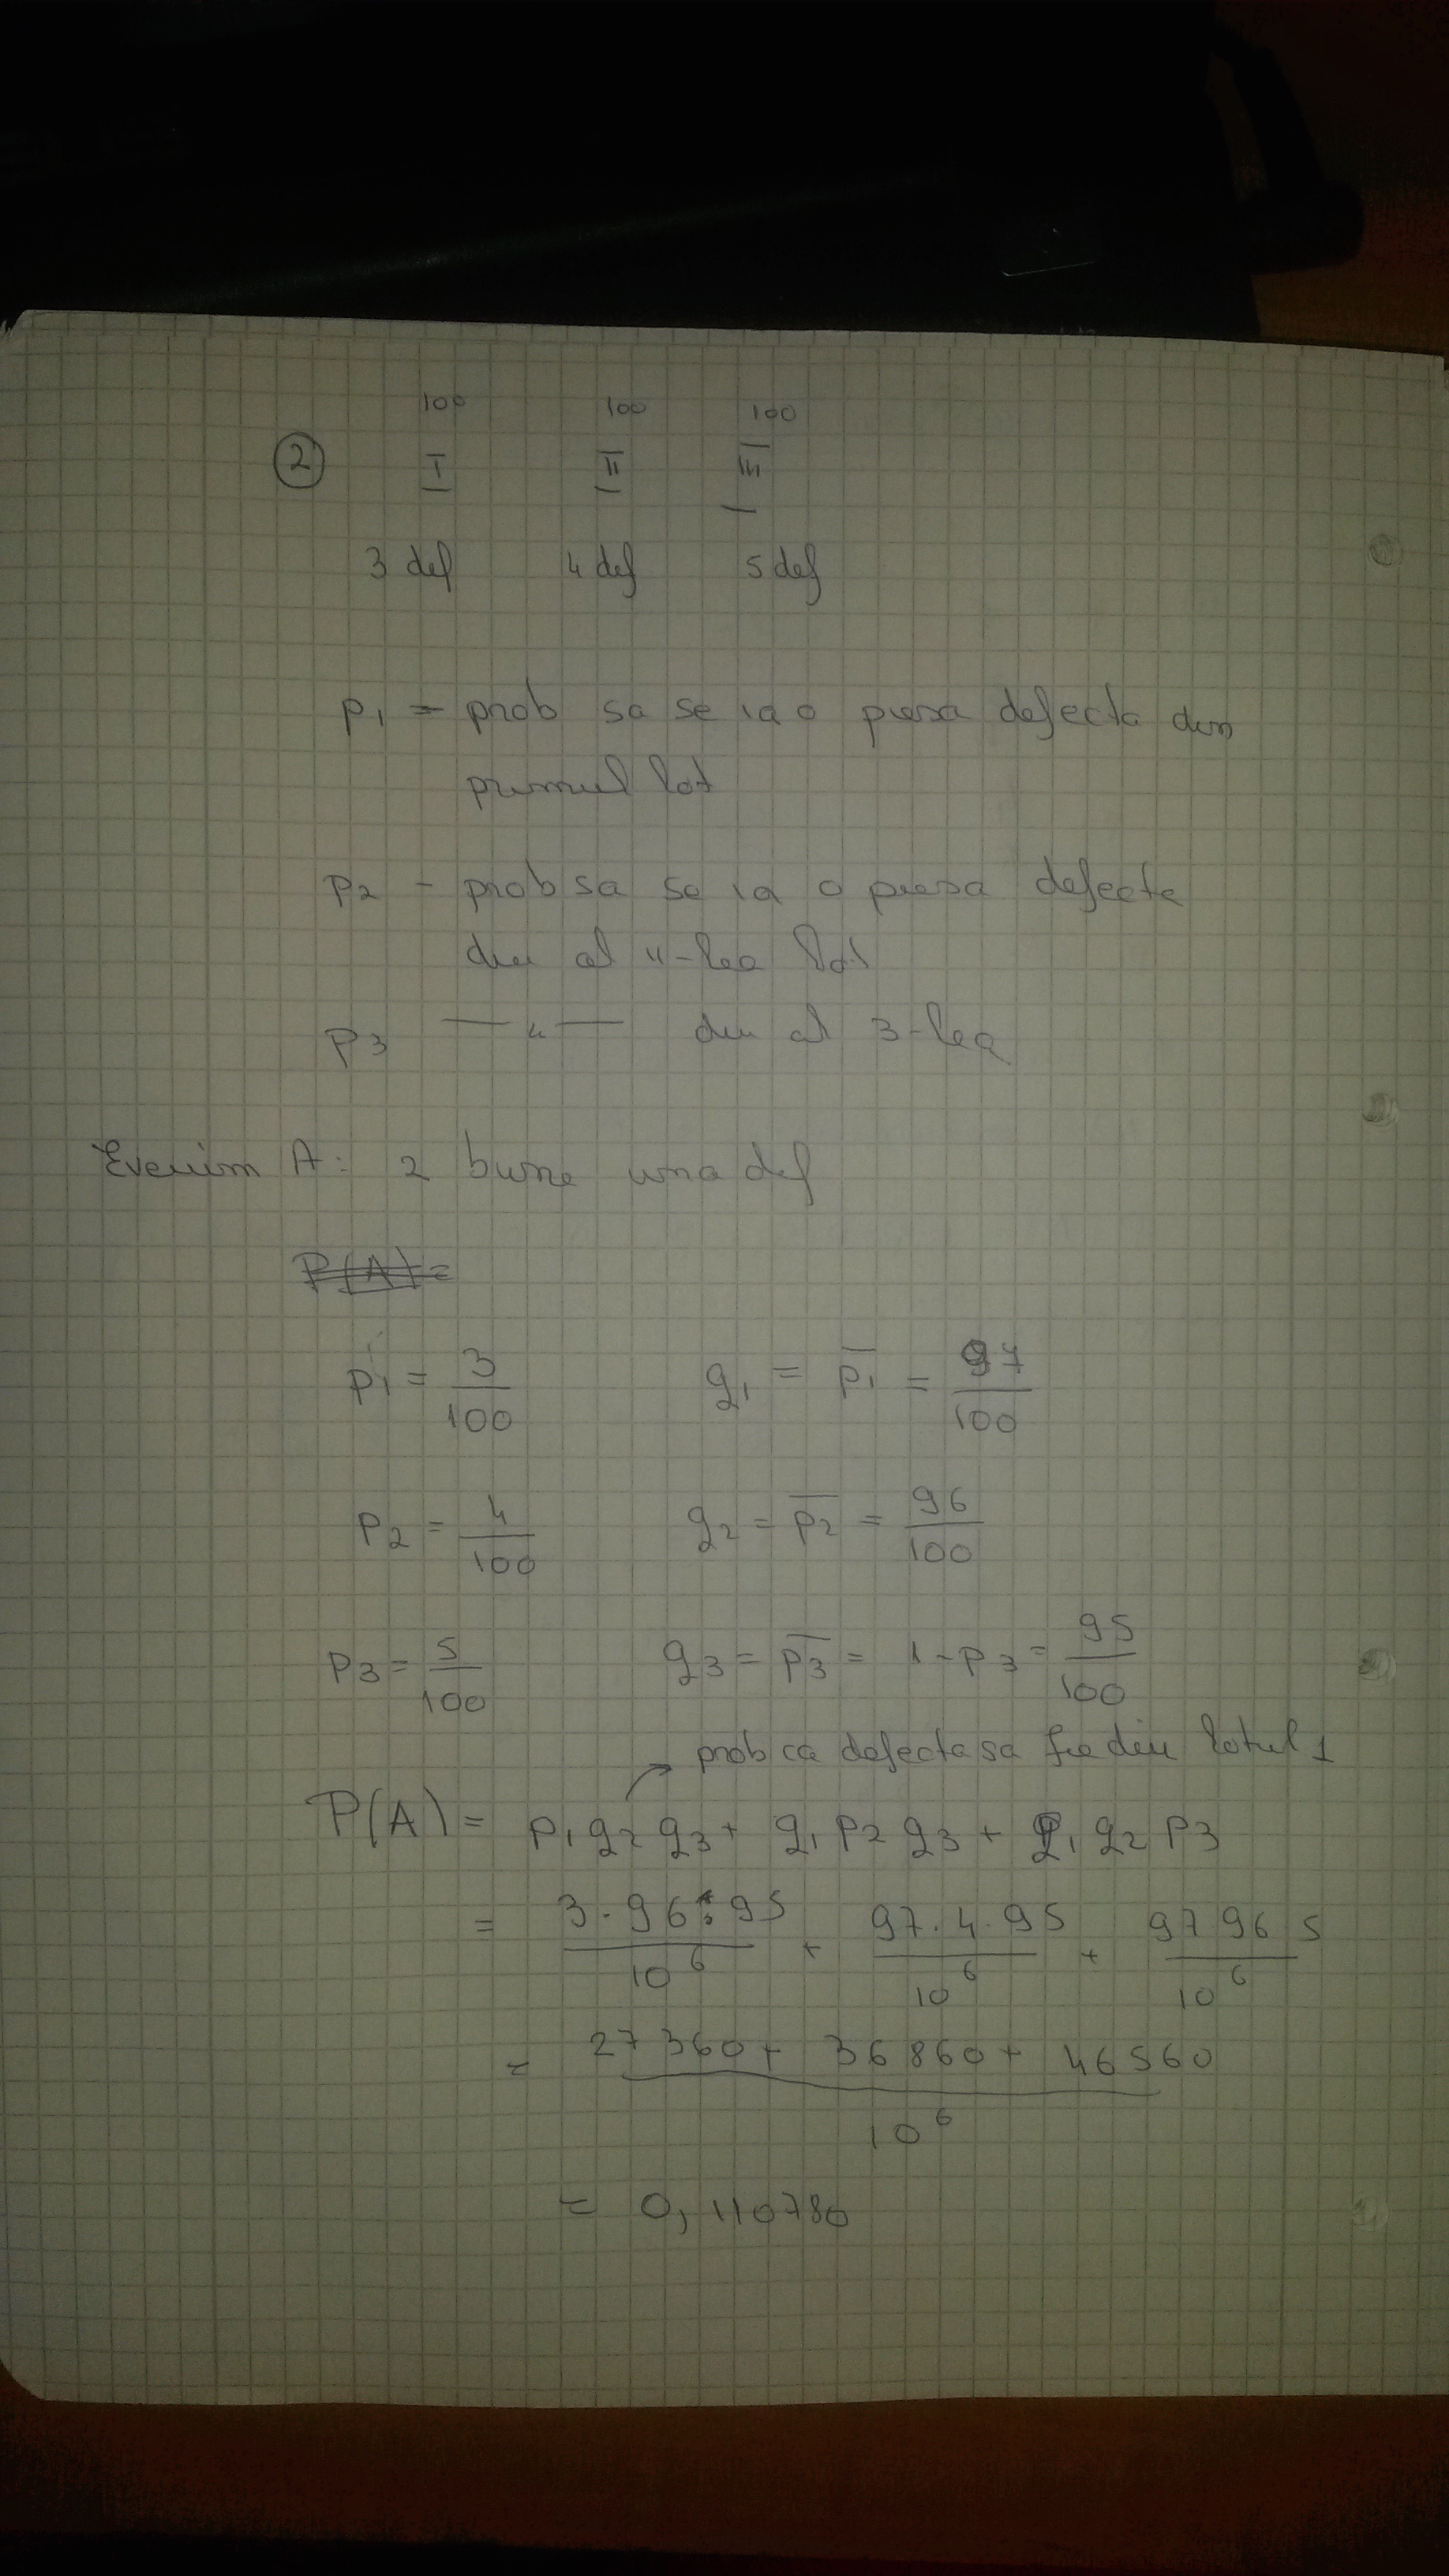 100 100 100
2 I II III
3 def 4 def 5 def
p1 = prob sa se ia o piesa defecta din
primul lot
p2 - prob sa se ia o piesa defecta
din al II-lea lot
p3 —"— din al 3-lea
Evenim A: 2 bune una def
P(A)=
p1 = 3/100 q1 = p̅1 = 97/100
p2 = 4/100 q2 = p̅2 = 96/100
p3 = 5/100 q3 = p̅3 = 1-p3 = 95/100
→ prob ca defecta sa fie din lotul 1
P(A) = p1 q2 q3 + q1 p2 q3 + q1 q2 p3
= 3·96·95/10^6 + 97·4·95/10^6 + 97 96 5/10^6
= 27360 + 36860 + 46560 / 10^6
= 0,110780